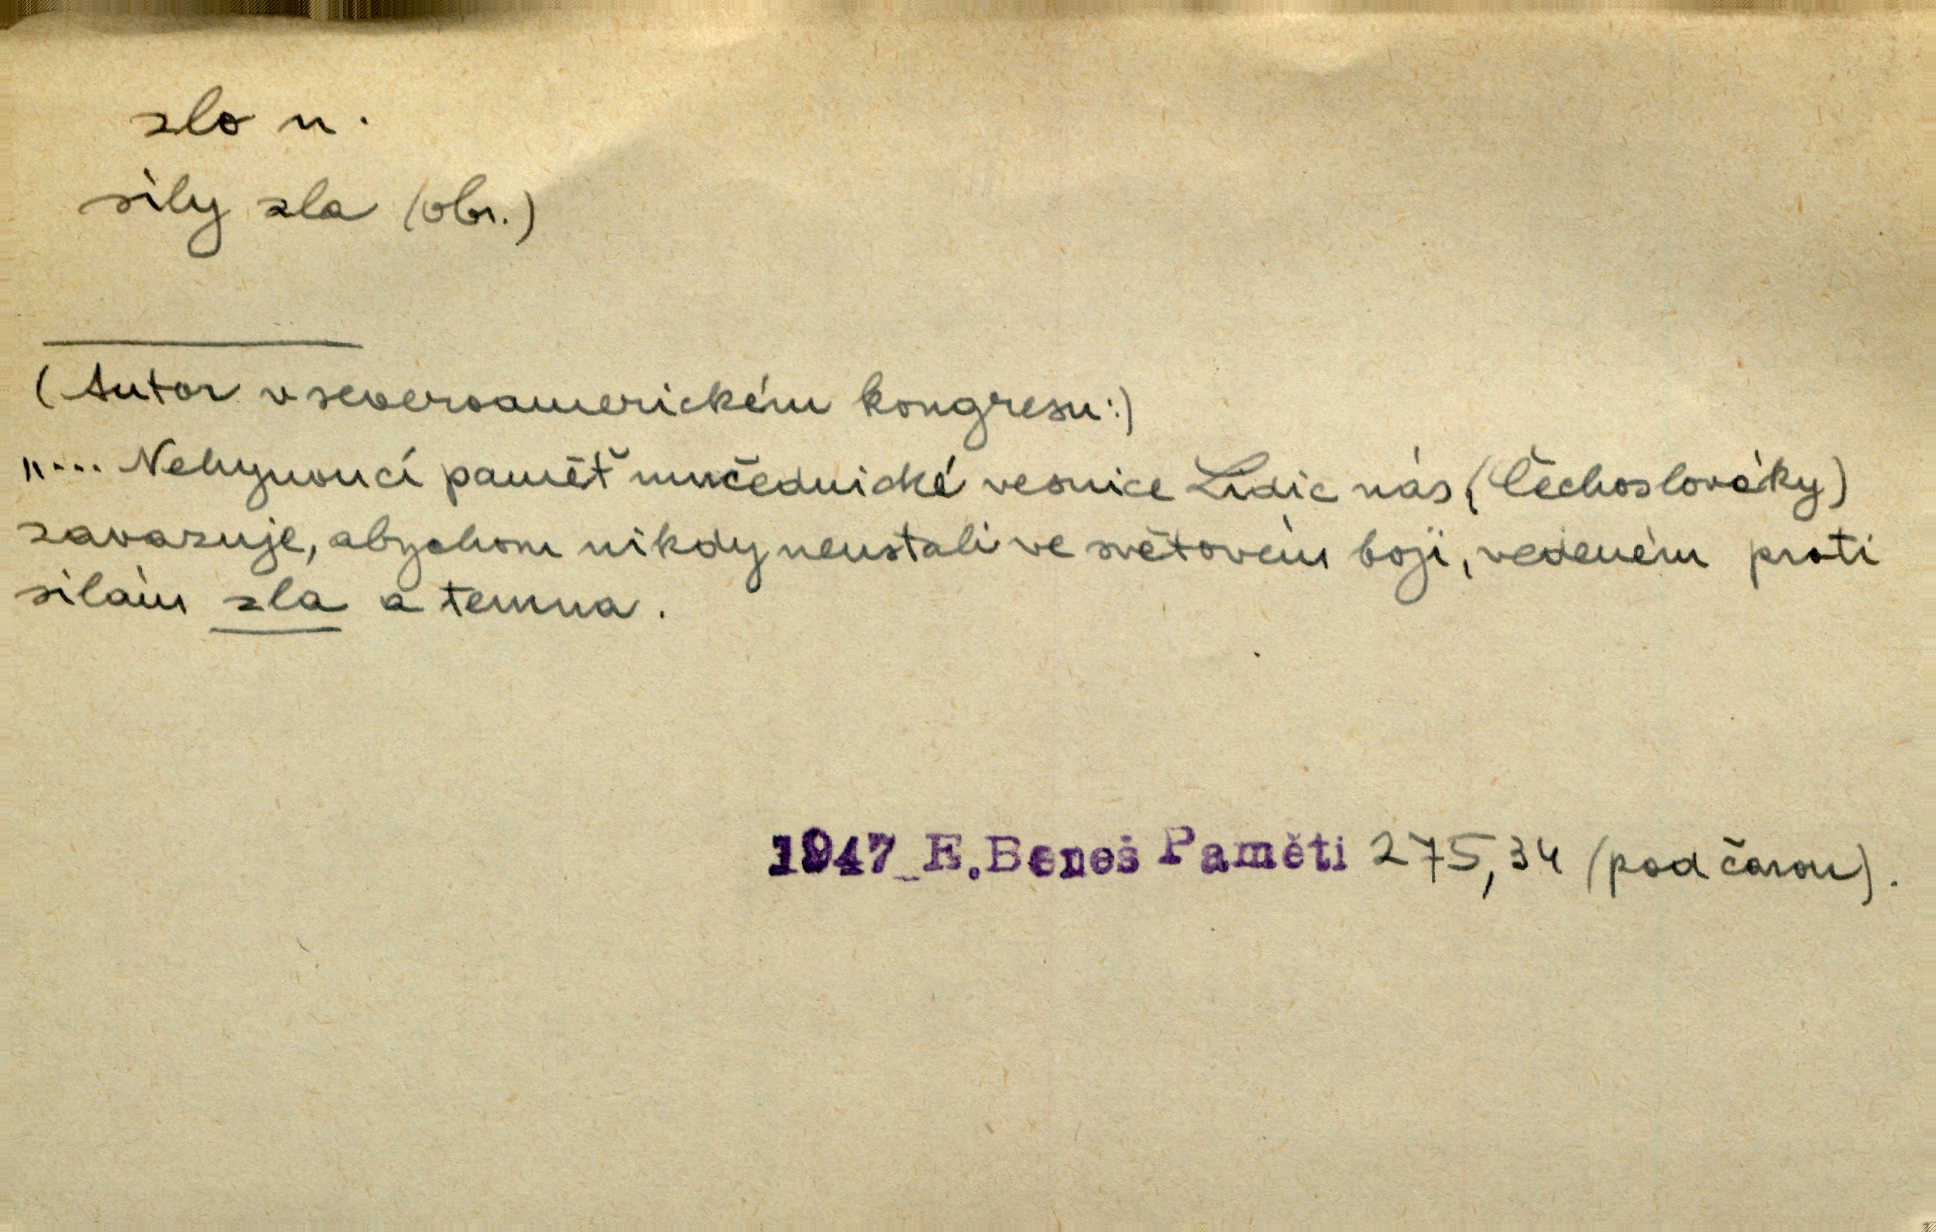 zlo n.
síly zla (obr.)
(Autor v severoamerickém kongresu:)
„... Nehynoucí paměť mučednické vesnice Lidic nás (Čechoslováky)
zavazuje, abychom nikdy neustali ve světovém boji, vedeném proti
silám zla a temna.
1947_E.Beneš Paměti 275,34 (pod čarou).